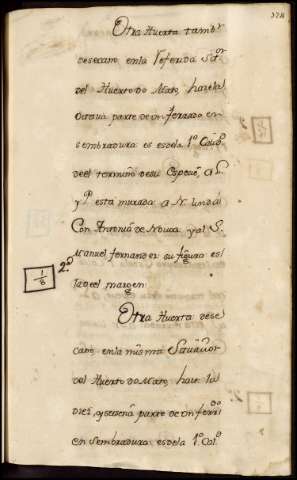 Otra Huerta tambn
desecano enla Referida Sitn
del Huerto do Mato, haze la
Octava parte de un ferrado en
sembradura: es dela 1a
deel termino desu Especie, a L.
y P. esta murada: a N. linda
Con Antonia de Noura y al S.
Manuel fernandez su figura es
la del margen:
1/8
2a
Otra Huerta dese
cano, en la misma Situacion
del Huerto do Mato, haze la
diez, y seisena parte de un ferrdo
en Sembradura: es dela 1a Caldd